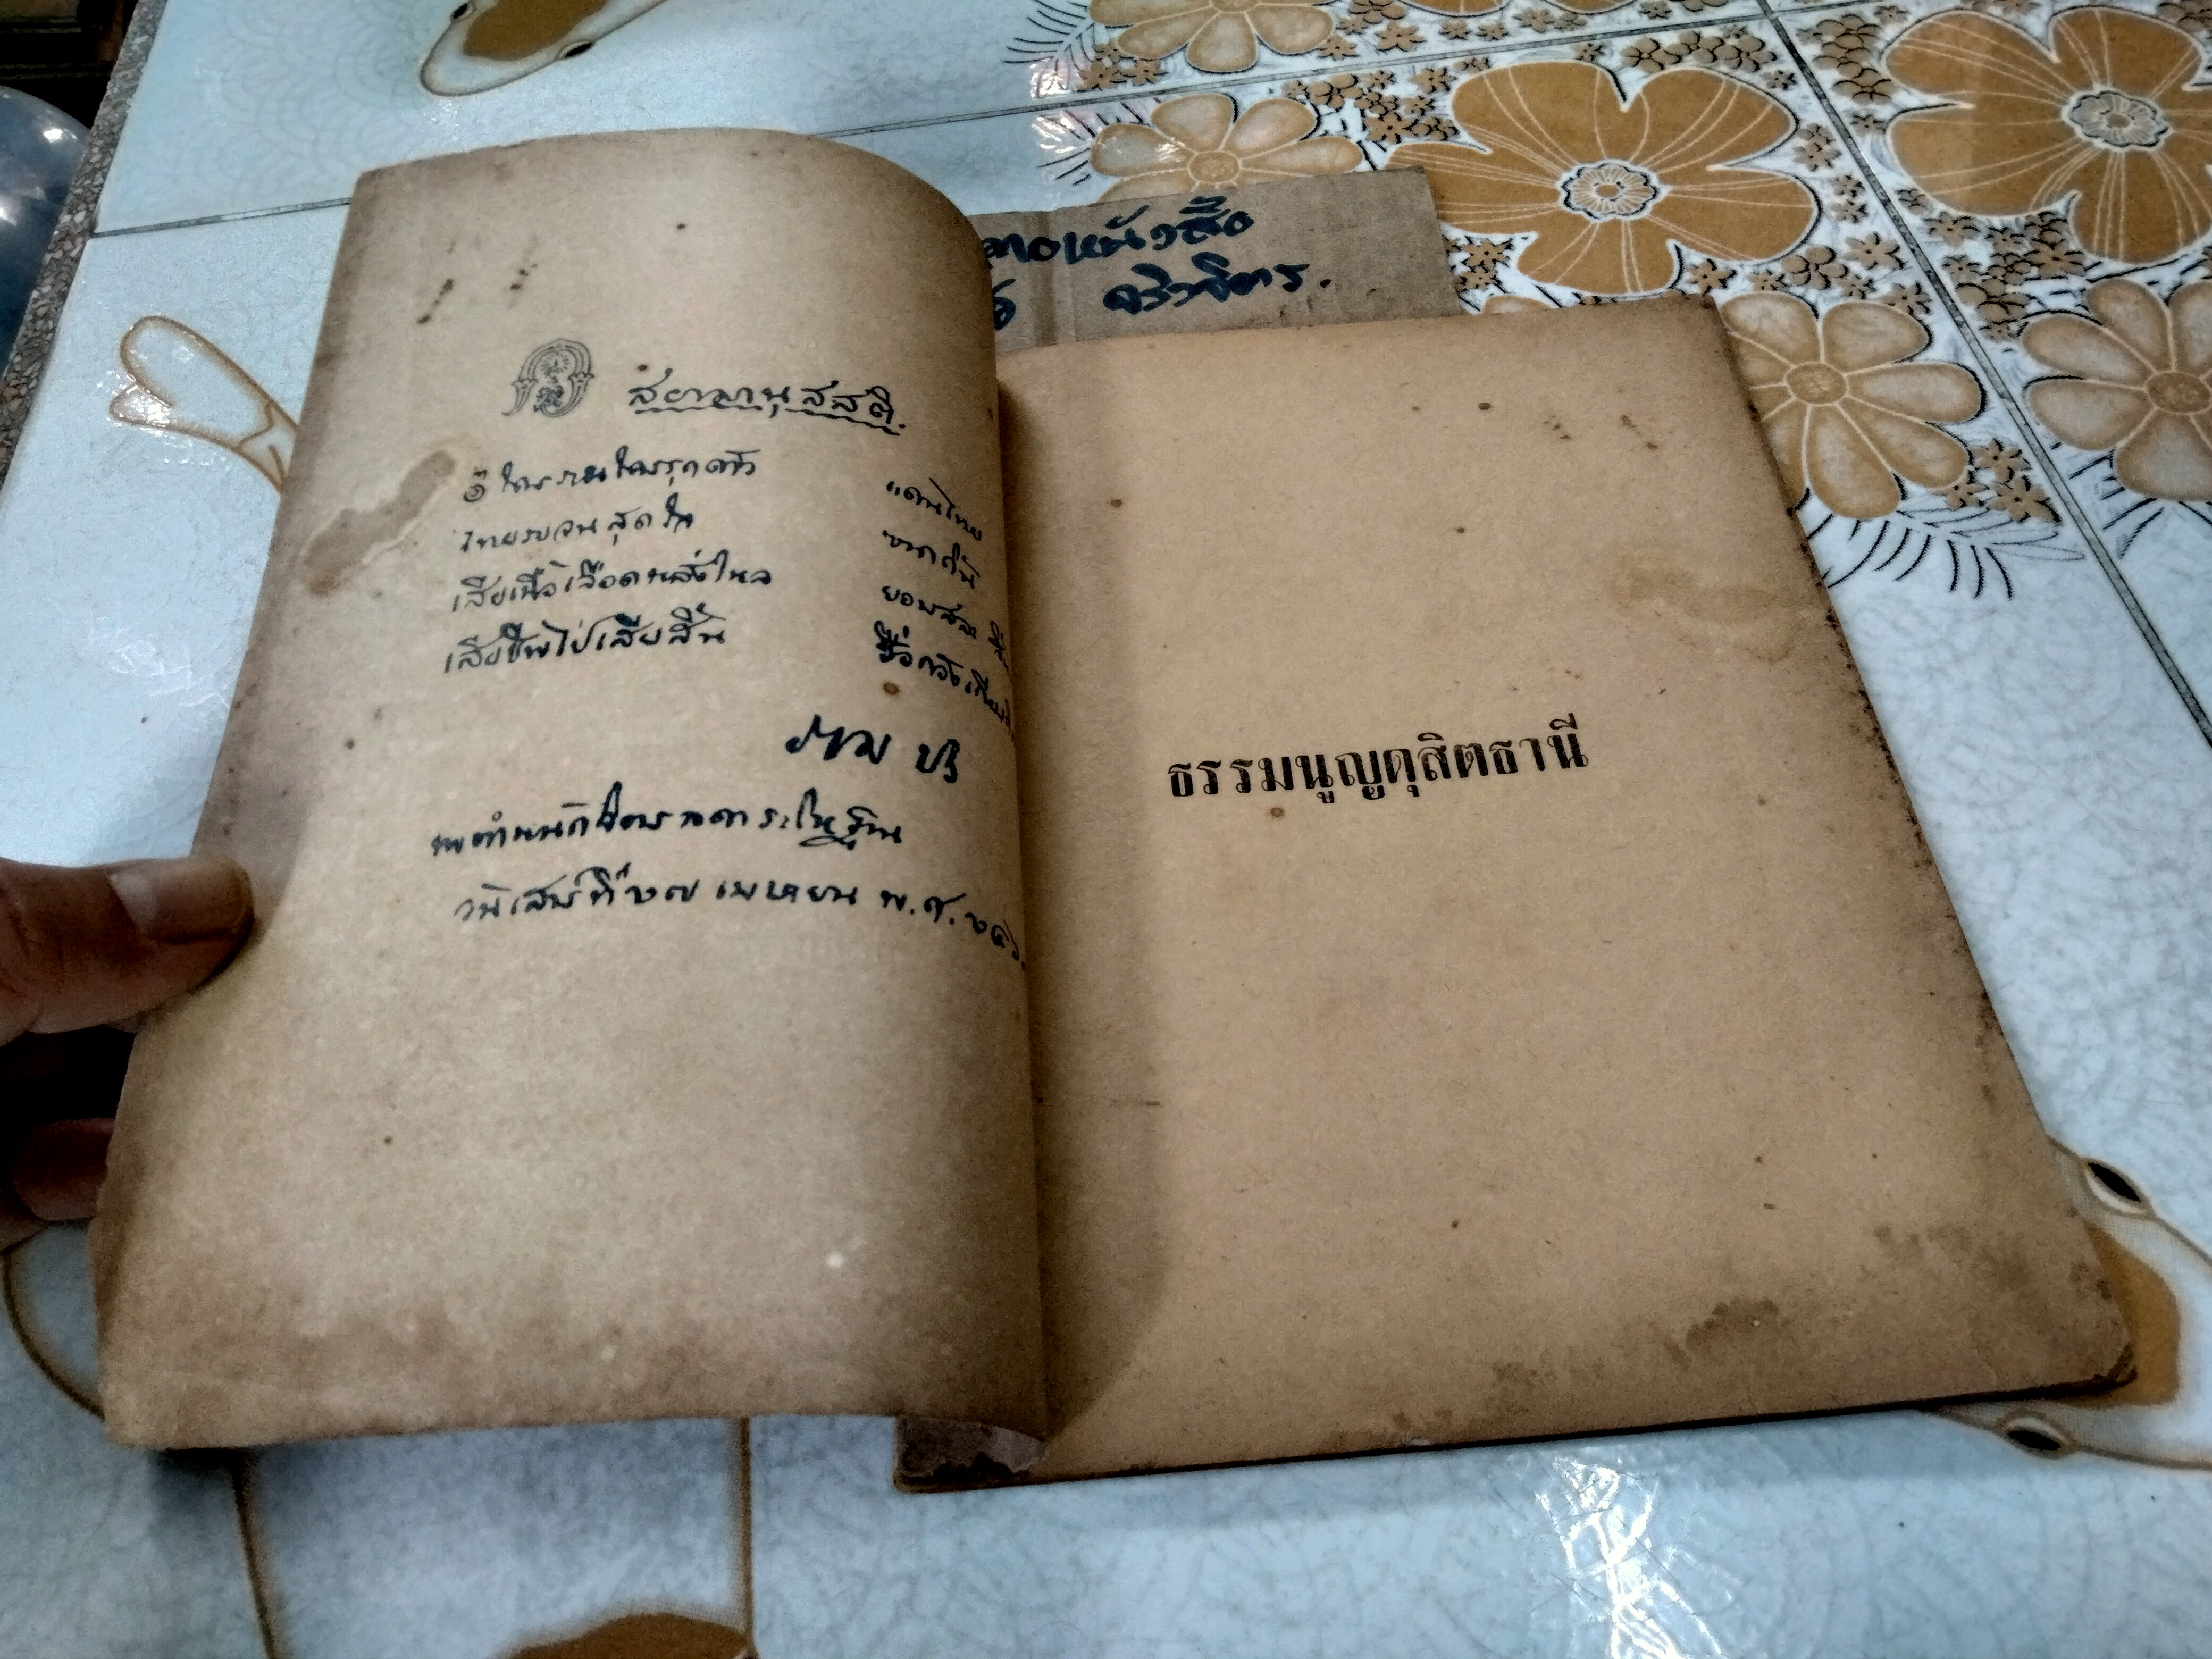 สยามานุสสติ.
๏ ใครรานใครรุกด้าว แดนไทย
ไทยรบจนสุดใจ ขาดดิ้น
เสียเนื้อเลือดหลั่งไหล ยอมสละ
เสียชีพไป่เสียสิ้น ชื่อ
ราม ปร
พระตำหนักจิตรลดารโหฐาน
วันเสาร์ที่ ๒๗ เมษายน พ.ศ.
ธรรมนูญดุสิตธานี